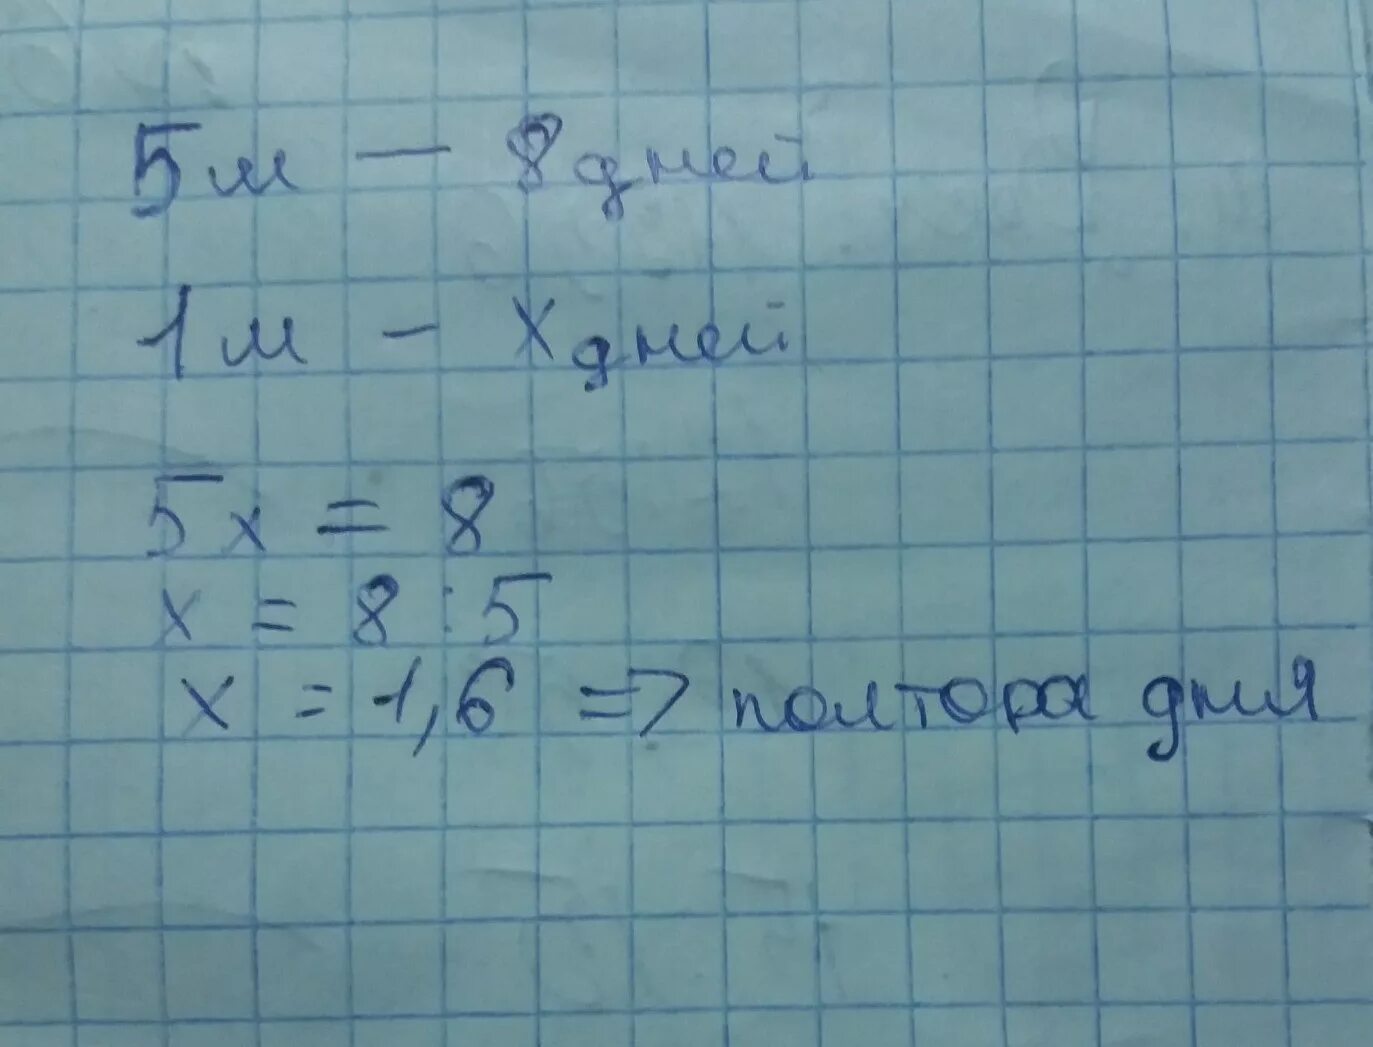 5м — 8 дней
1м - х дней
5х = 8
х = 8 : 5
х = 1,6 => полтора дня